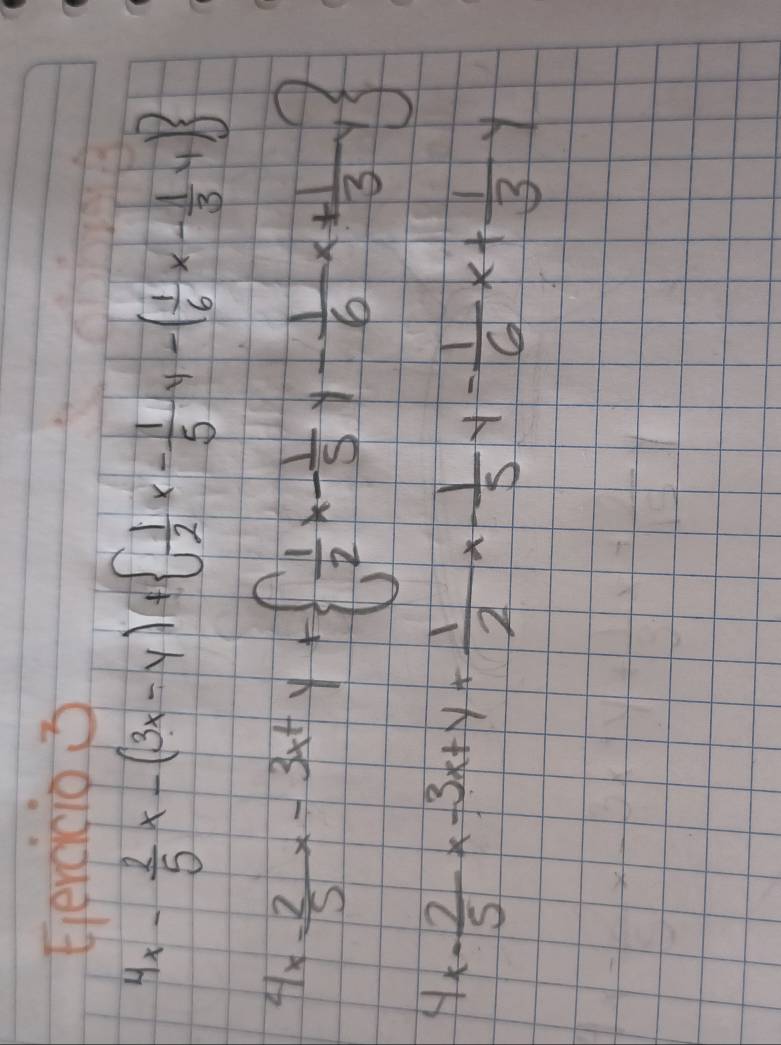 Ejercicio 3
4x - 2/5 x - (3x - y) + {1/2 x - 1/5 y - (1/6 x - 1/3 y)}
4x - 2/5 x - 3x + y + {1/2 x - 1/5 y - 1/6 x + 1/3 y}
4x - 2/5 x - 3x + y + 1/2 x - 1/5 y - 1/6 x + 1/3 y